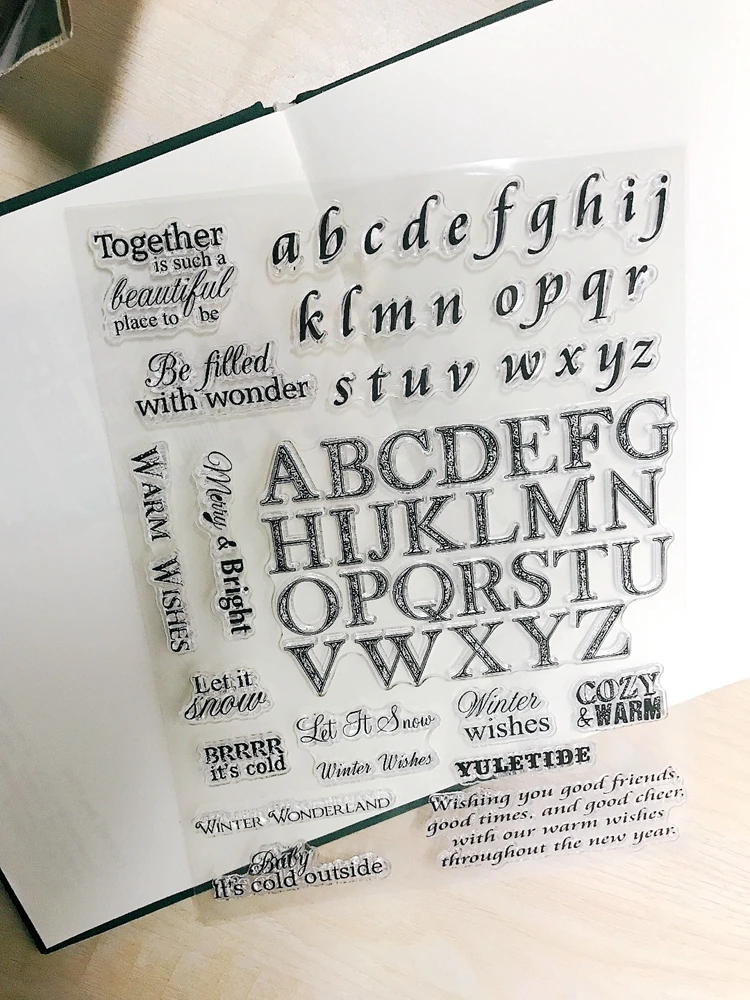 Together
is such a
beautiful
place to be
Be filled
with wonder
a b c d e f g h i j
k l m n o p q r
s t u v w x y z
WARM WISHES
Merry & Bright
ABCDEFG
HIJKLMN
OPQRSTU
VWXYZ
Let it
snow
Let It Snow
Winter
wishes
COZY
& WARM
BRRRR
it's cold
Winter Wishes
YULETIDE
WINTER WONDERLAND
Wishing you good friends,
good times, and good cheer,
with our warm wishes
throughout the new year.
Baby
it's cold outside